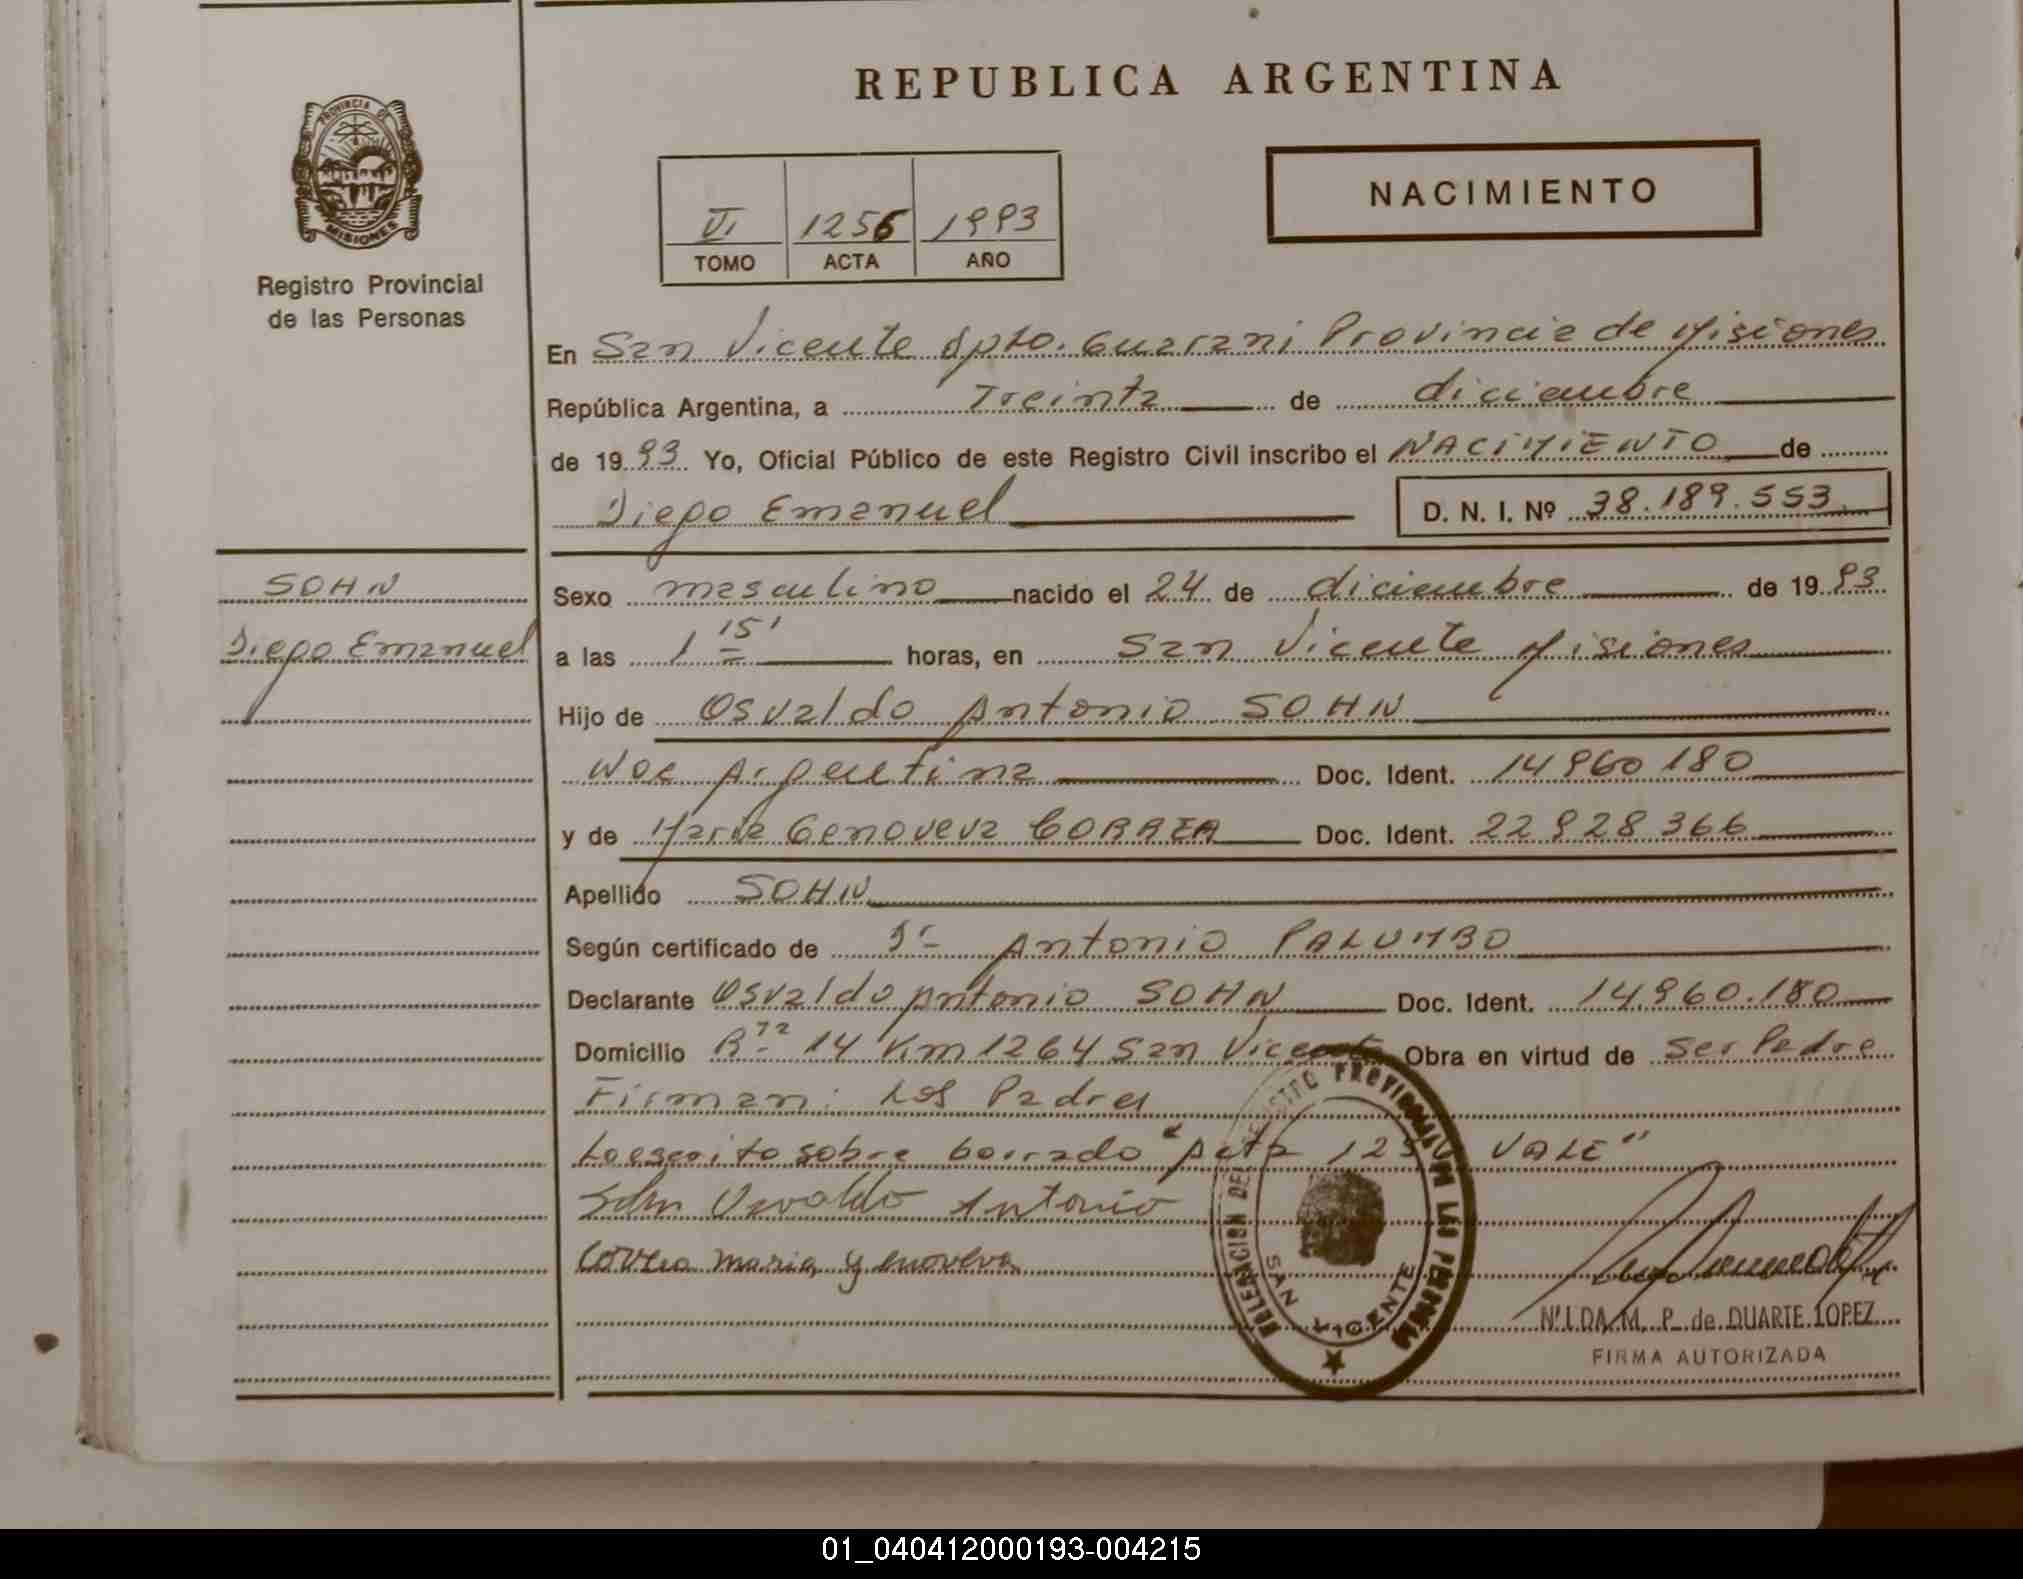 REPUBLICA ARGENTINA
PROVINCIA DE
MISIONES
Registro Provincial
de las Personas
NACIMIENTO
VI 1256 1993
TOMO ACTA AÑO
En San Vicente Dpto. Guarani Provincia de Misiones
República Argentina, a Treinta de diciembre
de 1993 Yo, Oficial Público de este Registro Civil inscribo el NACIMIENTO de
Diego Emanuel D. N. I. Nº 38.189.553
SOHN
Diego Emanuel
Sexo masculino nacido el 24 de diciembre de 1993
a las 1 15' horas, en San Vicente Misiones
Hijo de Osvaldo Antonio SOHN
Nac Argentina Doc. Ident. 14960180
y de Maria Genoveva CORREA Doc. Ident. 22928366
Apellido SOHN
Según certificado de Dr Antonio PALUMBO
Declarante Osvaldo Antonio SOHN Doc. Ident. 14.960.180
Domicilio Rta 14 Km 1264 San Vicente Obra en virtud de ser Padre
Firman: Los Padres
Lo escrito sobre borrado "Acta 125 VALE"
Sohn Osvaldo Antonio
Correa Maria Genoveva
DELEGACION DEL REGISTRO PROVINCIAL DE LAS PERSONAS
SAN VICENTE
NILDA M. P. de DUARTE LOPEZ
FIRMA AUTORIZADA
01_040412000193-004215